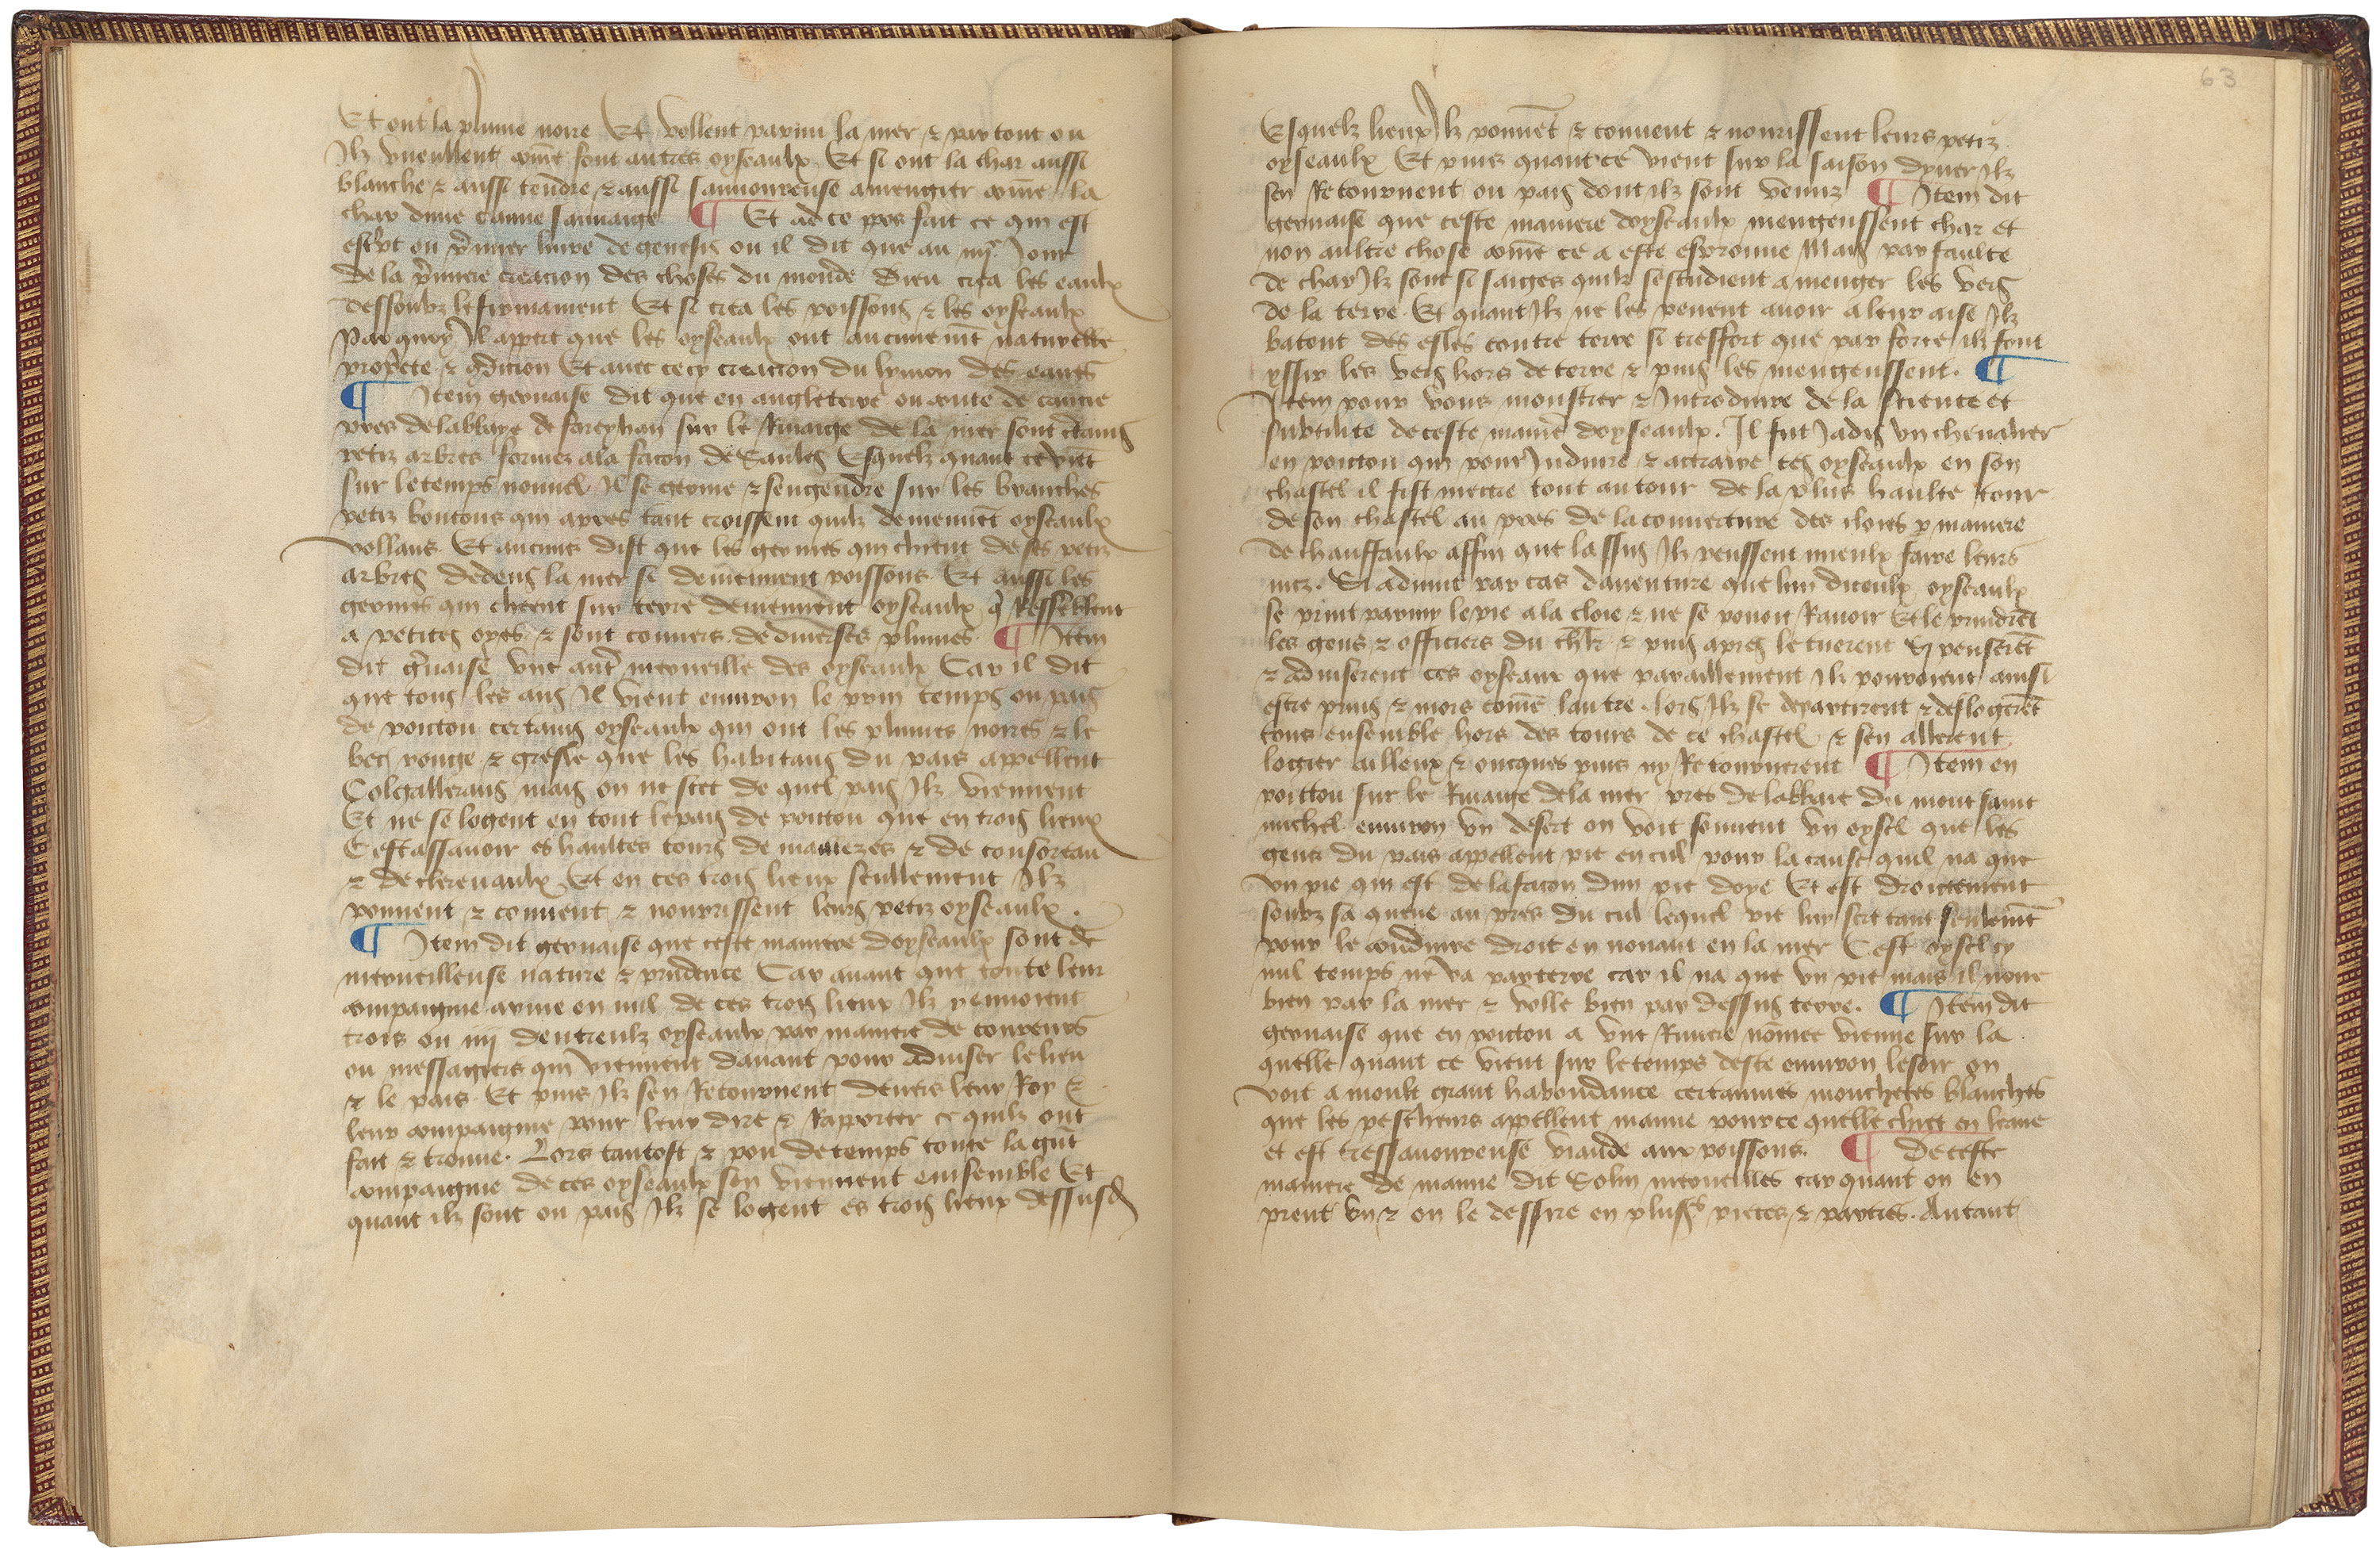 Et ont la plume noire Et vollent parmi la mer ⁊ par tout ou
Ilz vueullent com̄e font autres oyseaulx Et si ont la char aussi
blanche ⁊ aussi tendre ⁊ aussi sauuoureuse a mengier com̄e la
char dune canne sauuaige ¶ Et ad ce pos fait ce qui est
escript ou p̄mier liure de genesis ou il dit que au iiije Jour
de la p̄miere creacion des choses du monde dieu crea les eaulx
dessoubz le firmament Et si crea les poissons ⁊ les oyseaulx
Par quoy Il appert que les oyseaulx ont aucunemēt naturelle
prop̄ete ⁊ 9dicion Et auec cecy creacion du lymon des eaues
¶ Item geruaise dit que en angleterre ou conte de
pres de labbaye de farephan sur le Riuaige de la mer sont c̄tains
petiz arbres formez a la facon de Saules Esquelz quant ce viēt
sur le temps nouuel Il se germe ⁊ sengendre sur les branches
petiz boutons qui apres tant croissent quilz deuiennēt oyseaulx
vollans Et aucuns dist que les germes qui chient de ses petiz
arbres dedens la mer si deuiennent poissons Et aussi les
germes qui cheent sur terre deuiennent oyseaulx q̄ Ressēblent
a petites oyes ⁊ sont couuers de diuerses plumes ¶ Item
dit ḡuaise vne aut̄ merueille des oyseaulx Car il dit
que tous les ans Il vient enuiron le prin temps ou pais
de poictou certains oyseaulx qui ont les plumes noires ⁊ le
bec rouge ⁊ gresle que les habitans du pais appellent
Colgallerans mais on ne scet de quel pais Ilz viennent
Et ne se logent en tout le pais de poictou que en trois lieux
Cest assauoir es haultes tours de maillezes ⁊ de consoreau
⁊ de cherevaulx Et en ces trois lieux seullement Ilz
ponnent ⁊ couuent ⁊ nourrissent leurs petiz oyseaulx.
¶ Item dit geruaise que ceste maniere doyseaulx sont de
merueilleuse nature ⁊ prudence Car auant que toute leur
compaignie arriue en nul de ces trois lieux Ilz y enuoient
trois ou iiij dentreulx oyseaulx par maniere de coureurs
ou messagiers qui viennent dauant pour aduiser le lieu
⁊ le pais Et puis Ilz sen Retournent deuers leur Roy ⁊
leur compaignie pour leur dire ⁊ Rapporter ce quilz ont
fait ⁊ trouue. Lors tantost ⁊ pou de temps toute la gūt
compaignie de ces oyseaulx sen viennent ensemble Et
quant ilz sont ou pais Ilz se logent es trois lieux dessusd
63
Esquelz lieux Ilz ponnēt ⁊ couuent ⁊ nourissent leurs petiz
oyseaulx Et puis quant ce vient sur la saison dyuer Ilz
sen Retournent ou pais dont ilz sont venuz ¶ Item dit
geruaise que ceste maniere doyseaulx mengeussent char et
non aultre chose com̄e ce a este esprouue Mais par faulte
de char Ilz sont si saiges quilz sestudient a menger les vers
de la terre Et quant Ilz ne les peuent auoir a leur aise Ilz
batent des esles contre terre si tresfort que par force ilz font
yssir les vers hors de terre ⁊ puis les mengeussent. ¶
Item pour vous monstrer ⁊ Introduire de la science et
subtilite de ceste manie͂ doyseaulx. Il fut Jadis vn cheualier
en poictou qui pour Induire ⁊ actraire ces oyseaulx en son
chastel il fist mectre tout au tour de la plus haulte tour
de son chastel au pres de la couuerture des cloies p maniere
de chauffaulx affin que lassus Ilz peussent mieulx faire leurs
niz. Si aduint par cas dauenture que lun diceulx oyseaulx
se print parmy le pie a la cloie ⁊ ne se pouoit Rauoir Et le prindrēt
les gens ⁊ officiers du chl̄r ⁊ puis apres le tuerent Si penserēt
⁊ aduiserent ces oyseaux que paraillement Ilz pourroient ainsi
estre prins ⁊ mors com̄e lautre. lors Ilz se departirent ⁊ deslogerēt
tous ensemble hors des tours de ce chastel ⁊ sen allerent
logier ailleux ⁊ oncques puis ny Retournerent ¶ Item en
poictou sur le Riuaige de la mer pres de labbaie du mont saint
michel enuiron vn desert on voit souuent vn oysel que les
gens du pais appellent pie en cul pour la cause quil na que
vn pie qui est de la facon dun pie doye Et est droictement
soubz sa queue au pres du cul lequel pie luy sert tant seulemēt
pour le conduire droit en nouant en la mer Cest oysel cy
nul temps ne va par terre car il na que vn pie mais il noue
bien par la mer ⁊ volle bien par dessus terre. ¶ Item dit
geruaise que en poictou a vne Riuiere nōmee vienne sur la
quelle quant ce vient sur le temps deste enuiron le soir on
voit a moult grant habondance certaines mouchetes blanches
que les pescheurs appellent manne pource quelle chiet en leaue
et est tressauoureuse viande aux poissons. ¶ De ceste
maniere de manne dit Solin merueilles car quant on en
prent vn ⁊ on le dessire en plusrs pieces ⁊ parties. Autant